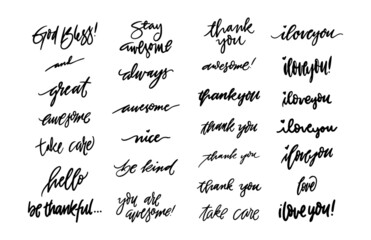 God Bless!
and
great
awesome
take care
hello
be thankful...
Stay
awesome
always
awesome
nice
be kind
you are
awesome!
thank
you
awesome!
thank you
thank you
thank you
thank you
take care
i love you
i love you!
i love you
i love you
i love you
love
i love you!